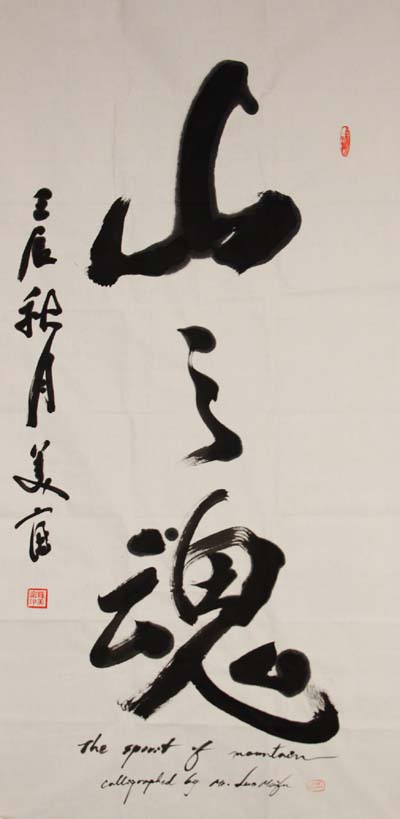 山之魂
壬辰秋月美富
the spirit of mountain
calligraphed by Mr. Sun Meifu